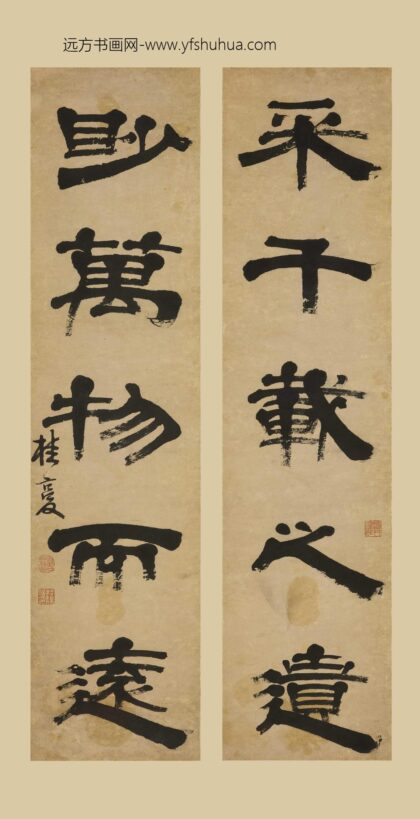 远方书画网-www.yfshuhua.com
采千載之遺
眇萬物而遠
桂馥